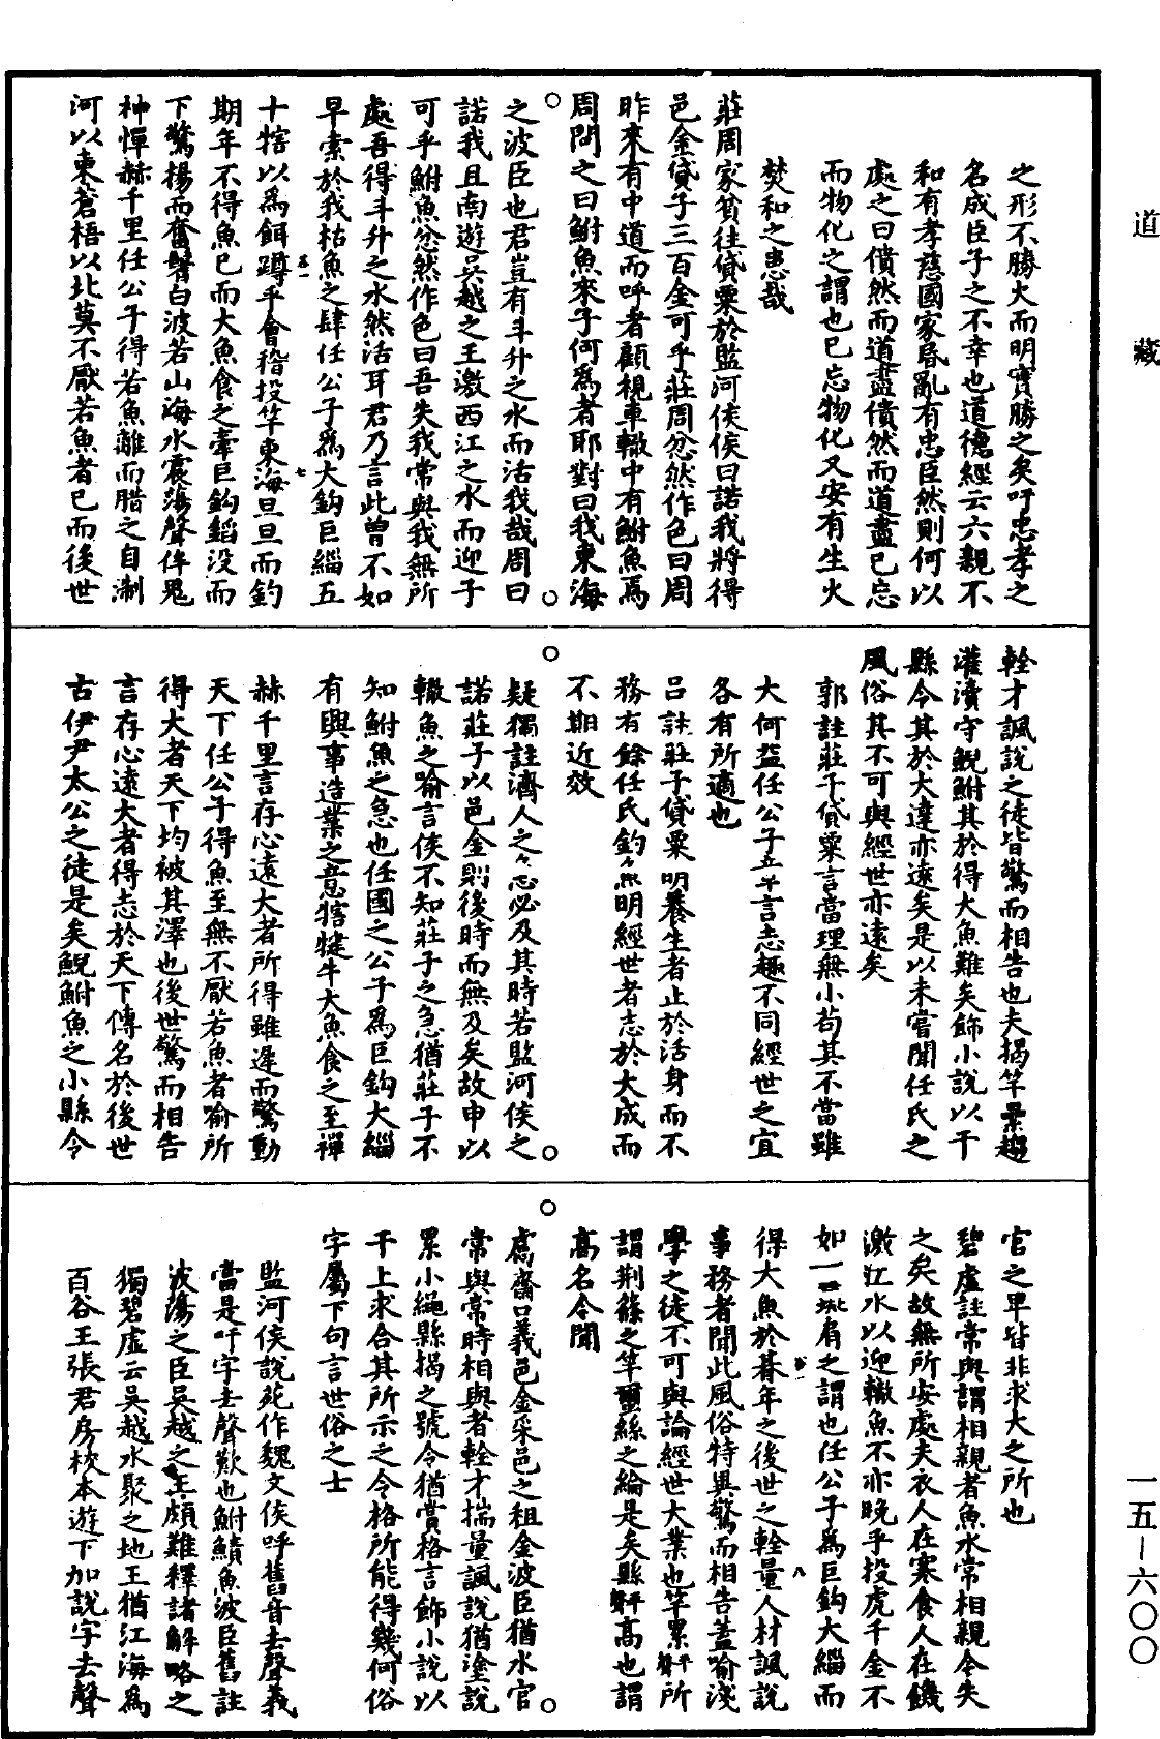 道藏
之形不勝火而明實勝之矣吁忠孝之
名成臣子之不幸也道德經云六親不
和有孝慈國家昏亂有忠臣然則何以
處之曰僓然而道盡僓然而道盡已忘
而物化之謂也已忘物化又安有生火
焚和之患哉
莊周家貧往貸粟於監河侯侯曰諾我將得
邑金貸子三百金可乎莊周忿然作色曰周
昨來有中道而呼者顧視車轍中有鮒魚焉
周問之曰鮒魚來子何爲者耶對曰我東海
之波臣也君豈有斗升之水而活我哉周曰
諾我且南遊吳越之王激西江之水而迎子
可乎鮒魚忿然作色曰吾失我常與我無所
處吾得斗升之水然活耳君乃言此曾不如
早索於我枯魚之肆任公子爲大鈎巨緇五
十犗以爲餌蹲乎會稽投竿東海旦旦而釣
期年不得魚已而大魚食之牽巨鈎錎没而
下驚揚而奮鬐白波若山海水震蕩聲侔鬼
神憚赫千里任公子得若魚離而腊之自淛
河以東蒼梧以北莫不厭若魚者已而後世
輇才諷說之徒皆驚而相告也夫揭竿累趨
灌瀆守鯢鮒其於得大魚難矣飾小說以干
縣令其於大達亦遠矣是以未嘗聞任氏之
風俗其不可與經世亦遠矣
郭註莊子貸粟言當理無小苟其不當雖
大何益任公子五羊言志趣不同經世之宜
各有所適也
呂註莊子貸粟明養生者止於活身而不
務有餘任氏釣魚明經世者志於大成而
不期近效
疑獨註濟人之急必及其時若監河侯之
諾莊子以邑金則後時而無及矣故申以
轍魚之喻言侯不知莊子之急猶莊子不
知鮒魚之急也任國之公子爲巨鈎大緇
有興事造業之意犗犍牛大魚食之至憚
赫千里言存心遠大者所得雖遲而驚動
天下任公子得魚至無不厭若魚者喻所
得大者天下均被其澤也後世驚而相告
言存心遠大者得志於天下傳名於後世
古伊尹太公之徒是矣鯢鮒魚之小縣令
官之卑皆非求大之所也
碧虛註常與謂相親者魚水常相親今失
之矣故無所安處夫衣人在寒食人在饑
激江水以迎轍魚不亦晚乎投虎千金不
如一豚肩之謂也任公子爲巨鈎大緇而
得大魚於朞年之後世之輇量人材諷說
事務者聞此風俗特異驚而相告蓋喻淺
學之徒不可與論經世大業也竿累平聲所
謂荆篠之竿璽絲之綸是矣縣平聲高也謂
高名令聞
鬳齋口義邑金采邑之租金波臣猶水官
常與常時相與者輇才揣量諷說猶塗說
累小繩縣揭之號令猶賞格言飾小說以
干上求合其所示之令格所能得幾何俗
字屬下句言世俗之士
監河侯說苑作魏文侯呼舊音去聲義
當是吁字去聲歎也鮒鰿魚波臣舊註
波蕩之臣吳越之王頗難釋諸解略之
獨碧虛云吳越水聚之地王猶江海爲
百谷王張君房校本遊下加說字去聲
一五—六〇〇